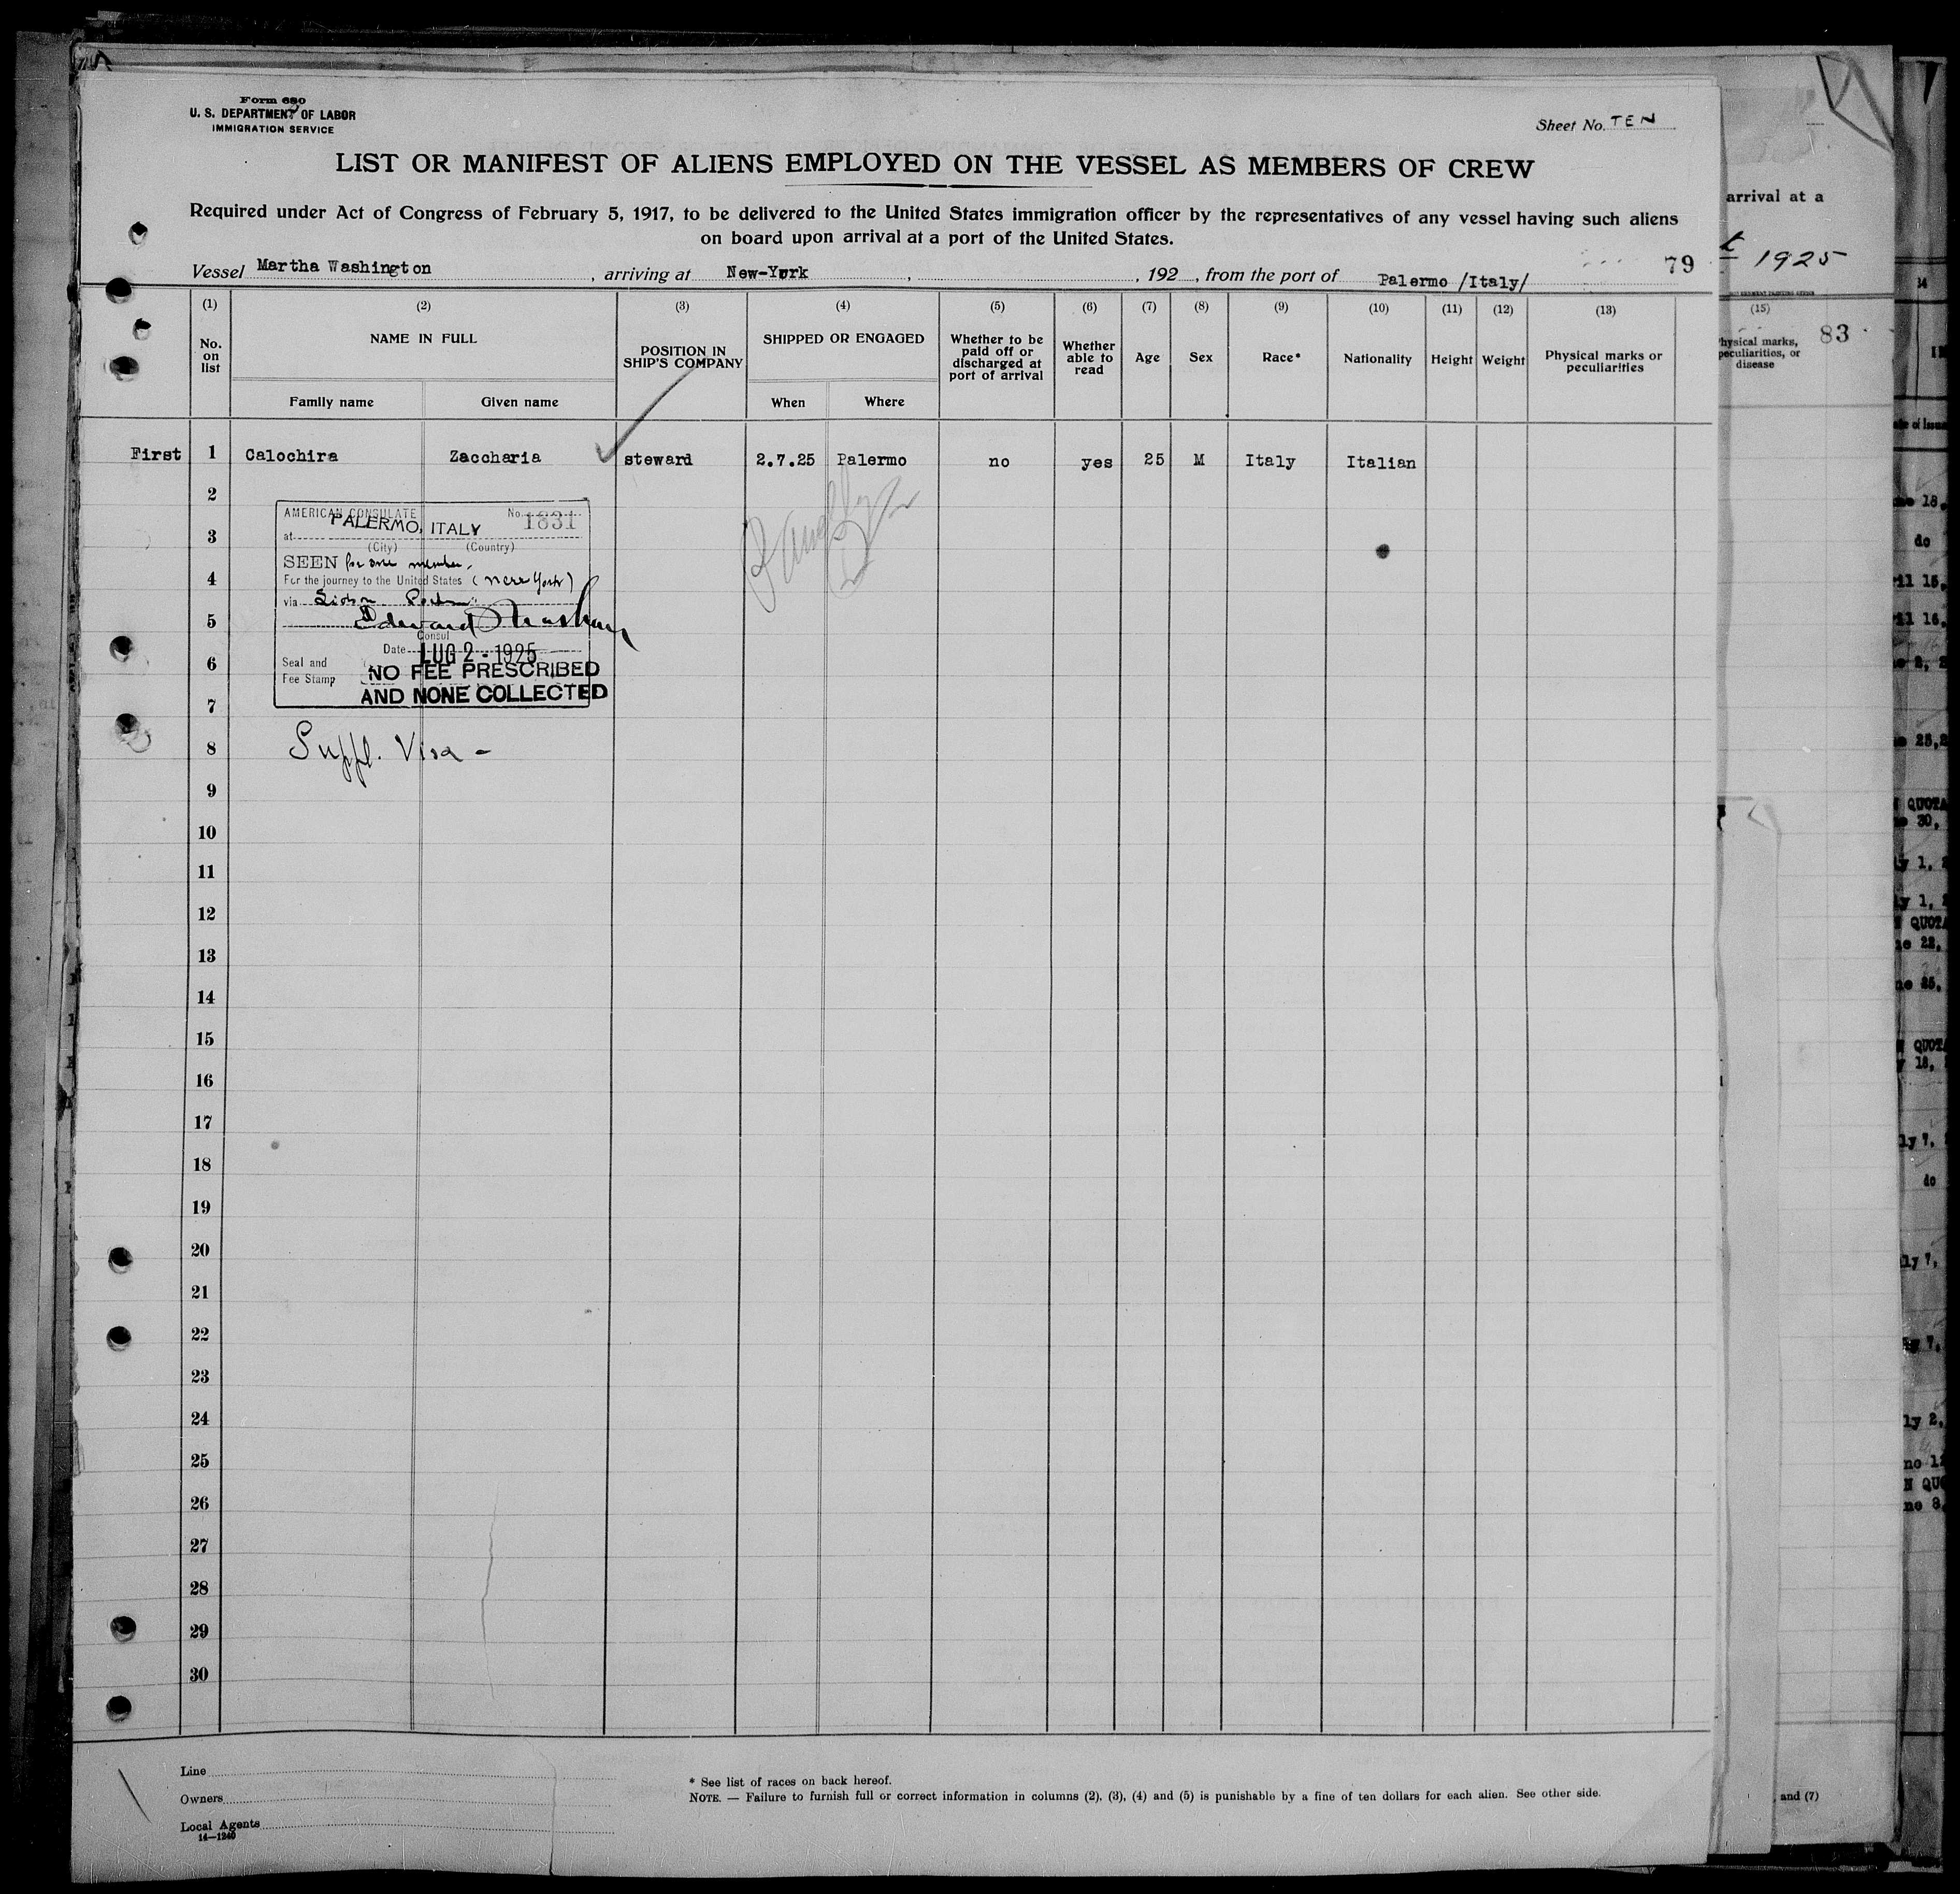 Form 680
U. S. DEPARTMENT OF LABOR
IMMIGRATION SERVICE
Sheet No. TEN
LIST OR MANIFEST OF ALIENS EMPLOYED ON THE VESSEL AS MEMBERS OF CREW
Required under Act of Congress of February 5, 1917, to be delivered to the United States immigration officer by the representatives of any vessel having such aliens
on board upon arrival at a port of the United States.
Vessel Martha Washington, arriving at New-York, , 192 , from the port of Palermo /Italy/
79
(1) (2) (3) (4) (5) (6) (7) (8) (9) (10) (11) (12) (13)
No. on list
NAME IN FULL
Family name
Given name
POSITION IN SHIP'S COMPANY
SHIPPED OR ENGAGED
When
Where
Whether to be paid off or discharged at port of arrival
Whether able to read
Age
Sex
Race*
Nationality
Height
Weight
Physical marks or peculiarities
First 1 Calochira Zaccharia steward 2.7.25 Palermo no yes 25 M Italy Italian
2
3
4
5
6
7
8
9
10
11
12
13
14
15
16
17
18
19
20
21
22
23
24
25
26
27
28
29
30
AMERICAN CONSULATE No. 1831
at PALERMO, ITALY
(City) (Country)
SEEN for one member,
For the journey to the United States (New York)
via
Edward
Consul
Date LUG 2 - 1925
Seal and
Fee Stamp
NO FEE PRESCRIBED
AND NONE COLLECTED
Suppl. Visa -
Line
Owners
Local Agents
14—1240
* See list of races on back hereof.
NOTE. — Failure to furnish full or correct information in columns (2), (3), (4) and (5) is punishable by a fine of ten dollars for each alien. See other side.
arrival at a
1925
(15)
83
Physical marks,
peculiarities, or
disease
and (7)
do
QUOTA
do